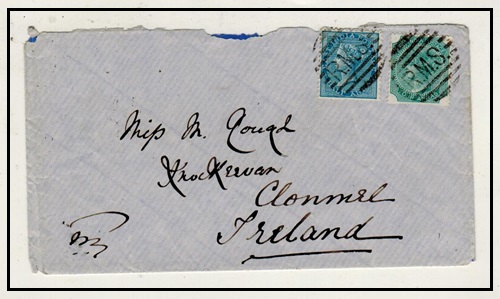 R.M.S.
R.M.S.
Miss M. Gough
Knockeevan
Clonmel
Ireland